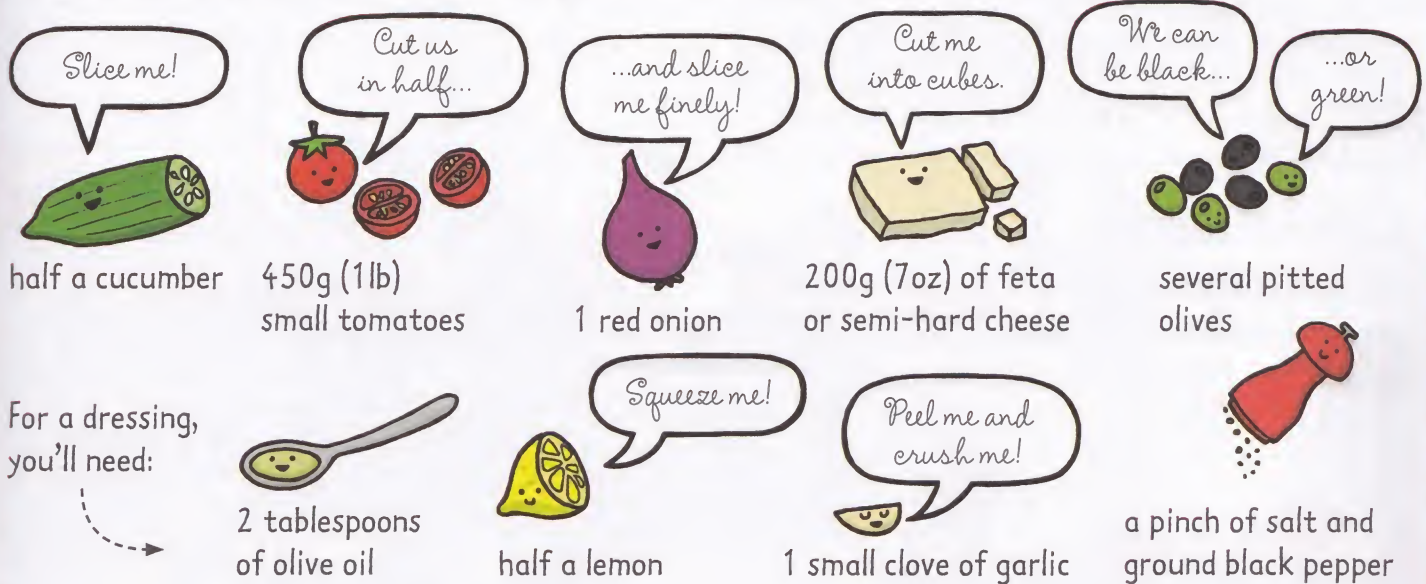 Slice me!
half a cucumber
Cut us
in half...
450g (1lb)
small tomatoes
...and slice
me finely!
1 red onion
Cut me
into cubes.
200g (7oz) of feta
or semi-hard cheese
We can
be black...
...or
green!
several pitted
olives
For a dressing,
you'll need:
2 tablespoons
of olive oil
Squeeze me!
half a lemon
Peel me and
crush me!
1 small clove of garlic
a pinch of salt and
ground black pepper